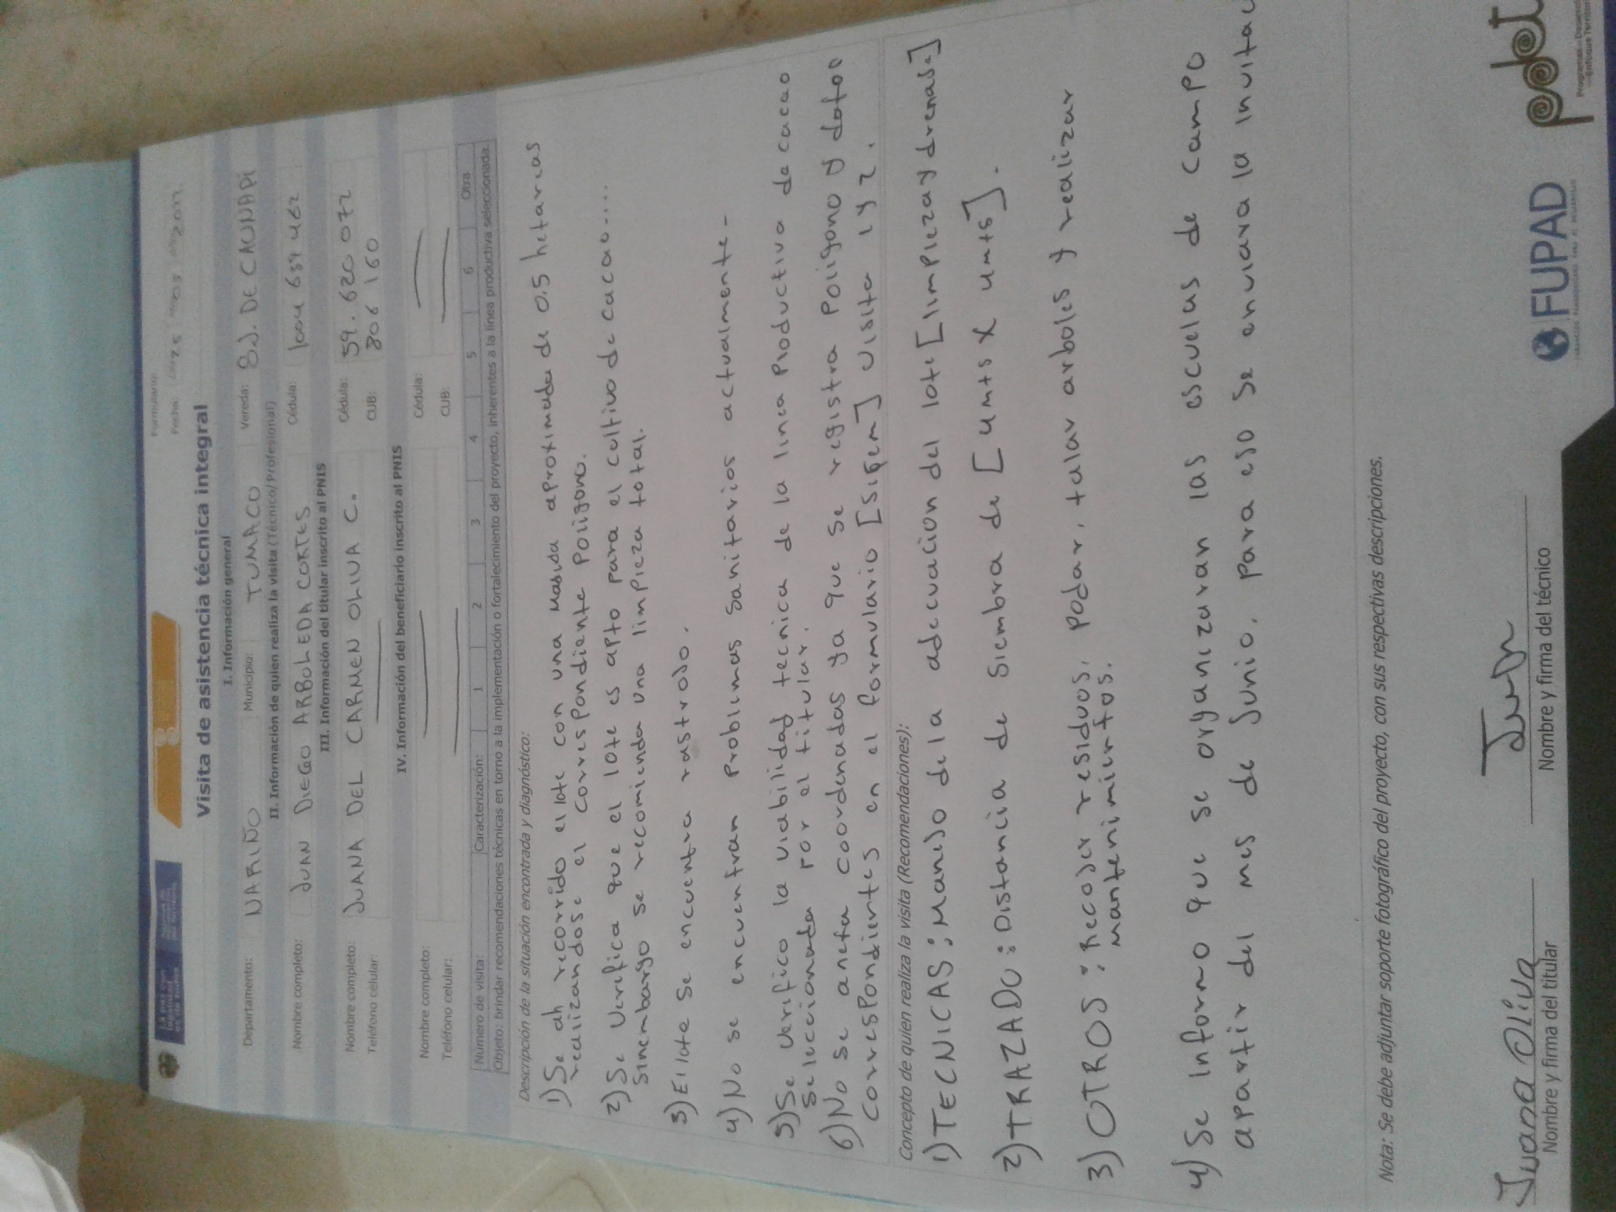 Formulario:
Fecha: 25 03 2022
Visita de asistencia técnica integral
I. Información general
Departamento: NARIÑO Municipio: TUMACO Vereda: BJ. DE CAUNAPI
II. Información de quien realiza la visita (Técnico/Profesional)
Nombre completo: JUAN DIEGO ARBOLEDA CORTES Cédula: 1004 637 462
III. Información del titular inscrito al PNIS
Nombre completo: JUANA DEL CARMEN OLIVA C. Cédula: 59.620 072
Teléfono celular: CUB: 806 160
IV. Información del beneficiario inscrito al PNIS
Nombre completo: Cédula:
Teléfono celular: CUB:
Número de visita: Caracterización: 1 2 3 4 5 6 Otra
Objeto: brindar recomendaciones técnicas en torno a la implementación o fortalecimiento del proyecto, inherentes a la línea productiva seleccionada.
Descripción de la situación encontrada y diagnóstico:
1) Se ah recorrido el lote con una Medida aproximada de 0.5 hetareas
realizandose el correspondiente Poligono.
2) Se Verifica que el lote es apto para el cultivo de cacao....
Sinembargo se recomienda una limpieza total.
3) El lote se encuentra rastrojo.
4) No se encuentran Problemas Sanitarios actualmente-
5) Se Verifico la viabilidad tecnica de la linea Productiva de cacao
Seleccionada por el titular.
6) No se aneta coordenadas ya que se registra Poligono y datos
correspondientes en el formulario [Sigen] visita 1 y 2.
Concepto de quien realiza la visita (Recomendaciones):
1) TECNICAS: Manejo de la adecuacion del lote [limpieza y drenaje]
2) TRAZADO: Distancia de Siembra de [4mts X 4mts].
3) OTROS: Recojer residuos, Podar, talar arboles y realizar
Mantenimientos.
4) Se informo que se organizaran las escuelas de campo
apartir del mes de Junio, para eso se enviara la invitac
Nota: Se debe adjuntar soporte fotográfico del proyecto, con sus respectivas descripciones.
Juana Oliva
Nombre y firma del titular
Nombre y firma del técnico
FUPAD
pdet